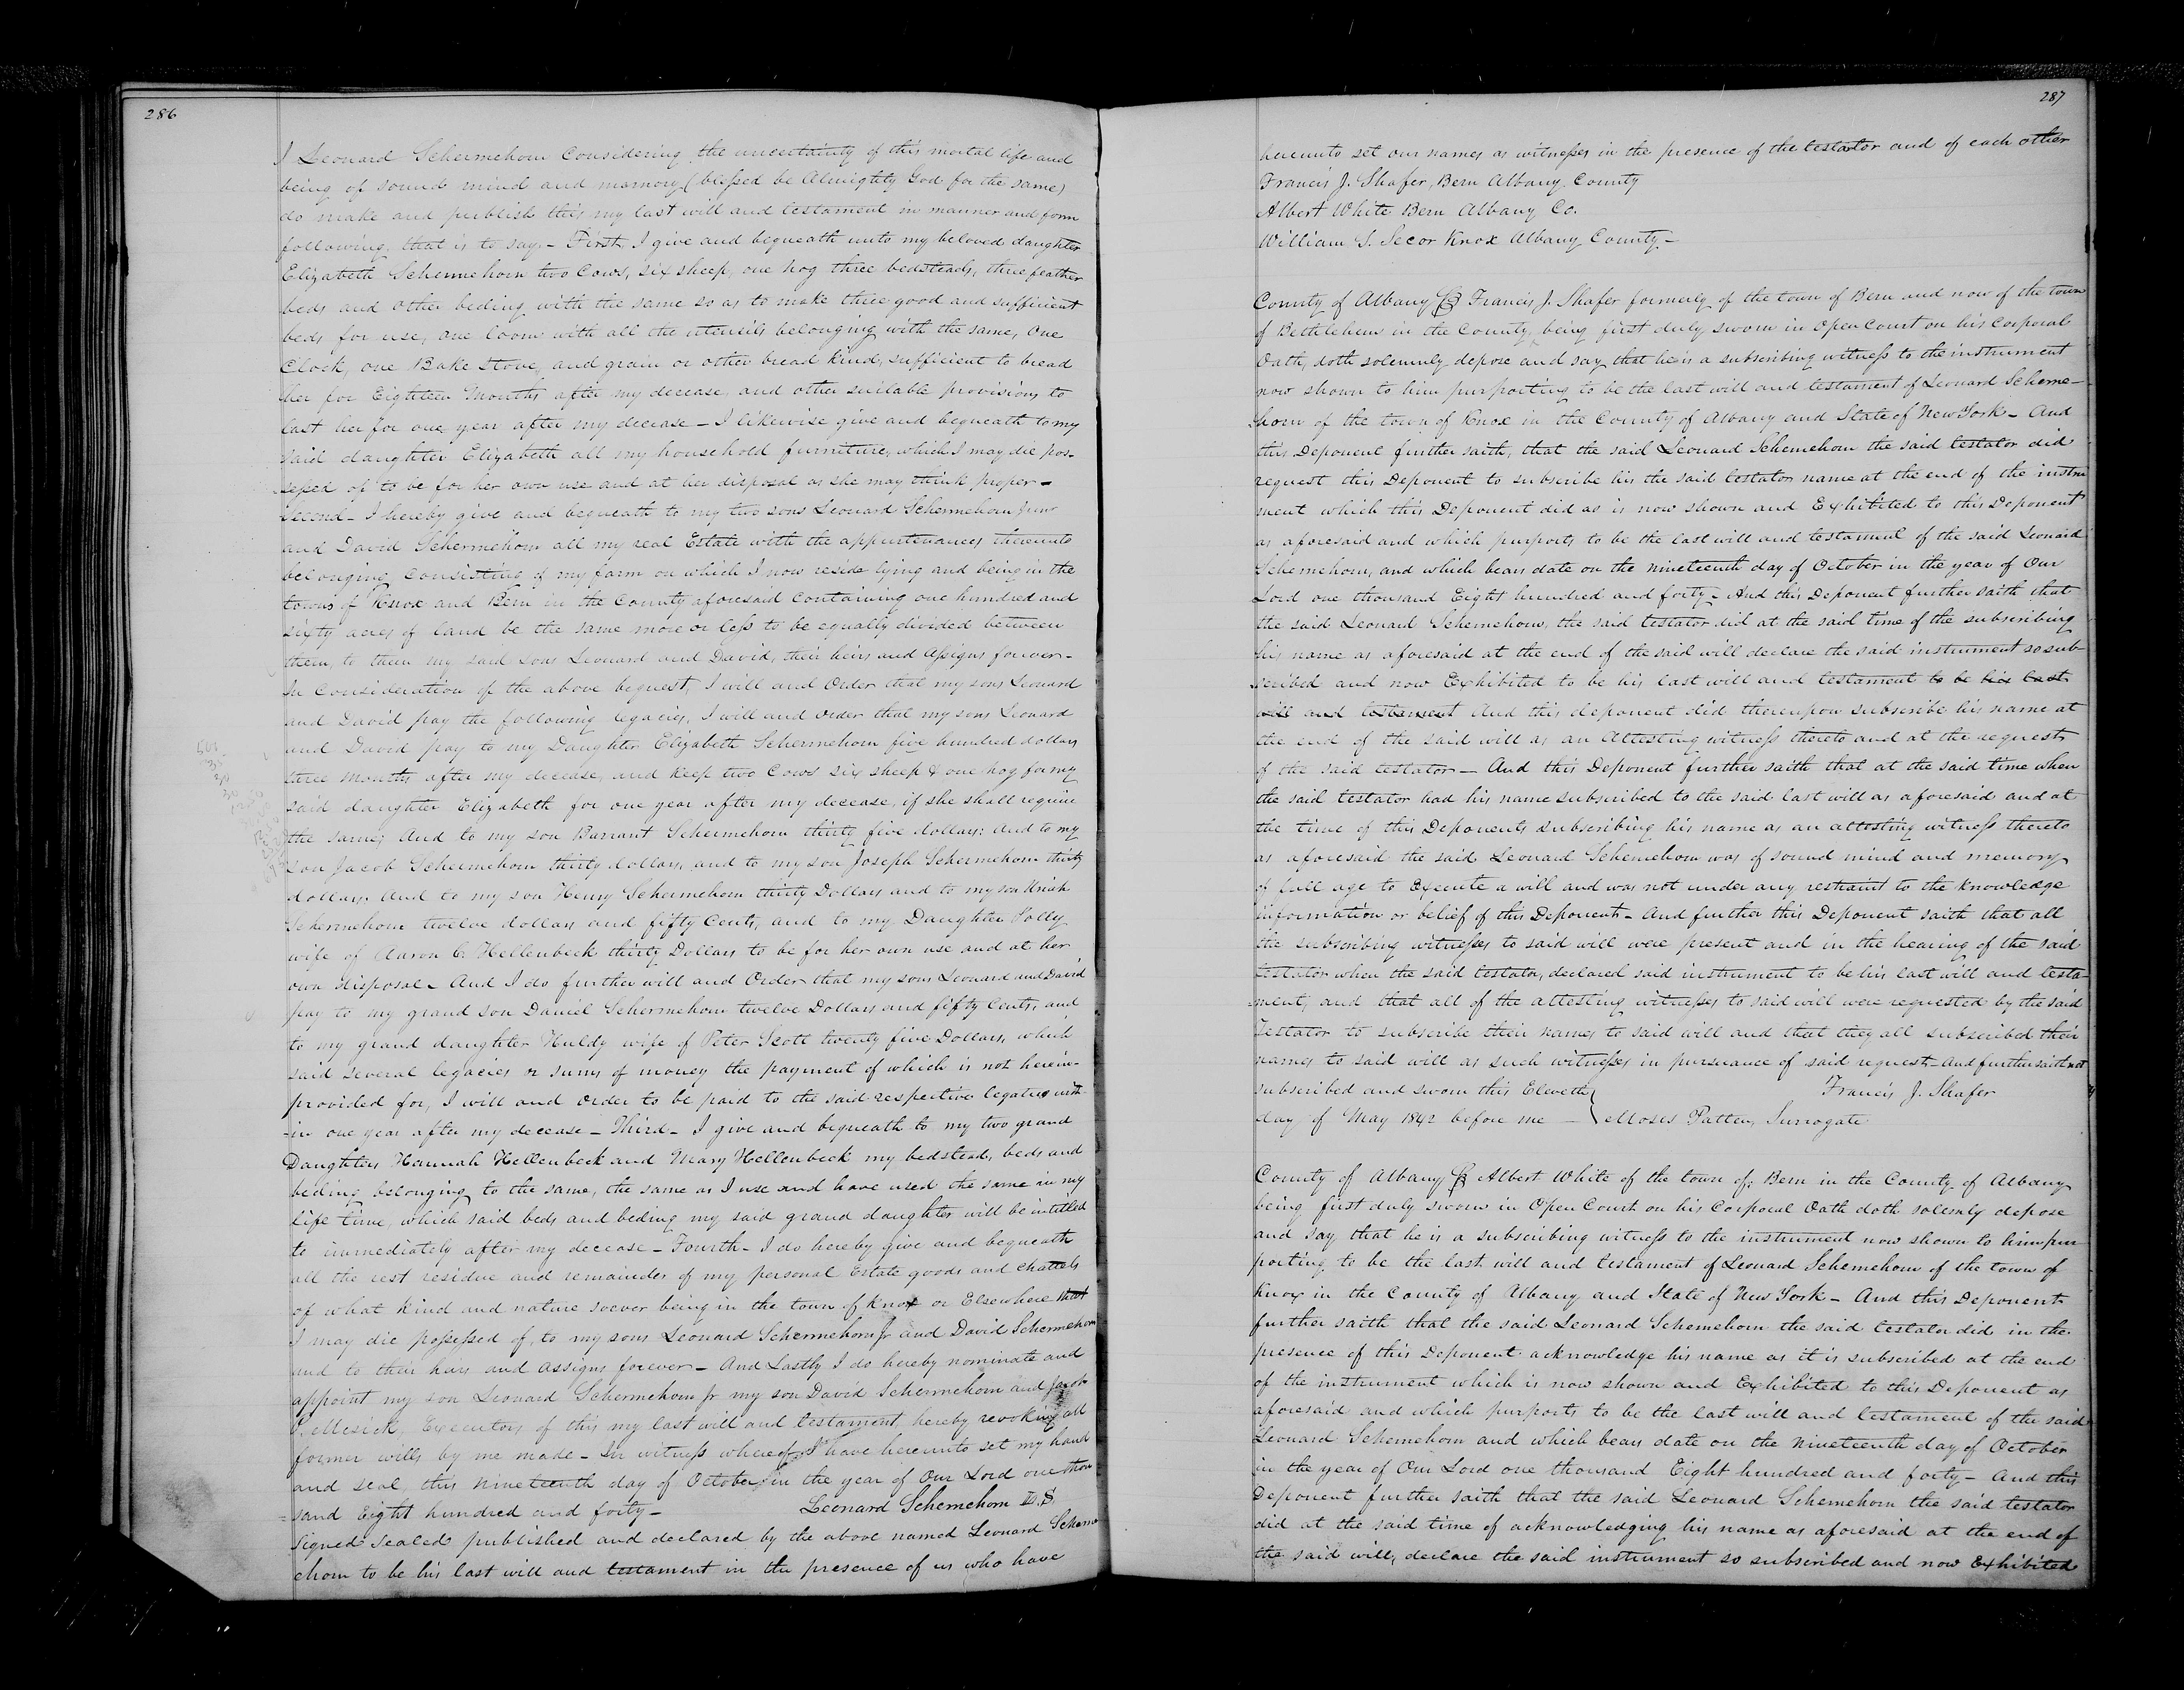 286
I Leonard Schermehorn Considering the uncertainty of this mortal life and
being of sound mind and mamory (blessed be Almighty God for the same)
do make and publish this my last will and testament in manner and form
following, that is to say. – First, I give and bequeath unto my beloved daughter
Elizabeth Schermehorn two Cows, six sheep, one hog three bedsteads, three feather
beds and other beding with the same so as to make three good and sufficient
beds for use, one loom with all the utensils belonging with the same, One
Clock, one Bake Stove, and grain or other bread kind, sufficient to bread
her for Eighteen Months after my decease, and other suitable provisions to
last her for one year after my decease – I likewise give and bequeath to my
said daughter Elizabeth all my household furniture, which I may die pos-
sesed of to be for her own use and at her disposal as she may think proper –
Second – I hereby give and bequeath to my two sons Leonard Schermehorn Junr
and David Schermehorn all my real Estate with the appurtenances thereunto
belonging, Consisting of my farm on which I now reside lying and being in the
towns of Knox and Bern in the County aforesaid Containing one hundred and
sixty acres of land be the same more or less to be equally divided between
them, to them my said sons Leonard and David, their heirs and assigns forever –
In Consideration of the above bequest, I will and Order that my sons Leonard
and David pay the following legacies, I will and order that my sons Leonard
and David pay to my Daughter Elizabeth Schermehorn five hundred dollars
three months after my decease, and keep two Cows six sheep & one hog for my
said daughter Elizabeth for one year after my decease, if she shall require
the same; And to my son Barrant Schermehorn thirty five dollars: And to my
son Jacob Schermehorn thirty dollars, and to my son Joseph Schermehorn thirty
dollars. And to my son Henry Schermehorn thirty Dollars and to my son Uriah
Schermehorn twelve dollars and fifty Cents, and to my Daughter Polly
wife of Aaron C. Hellenbeck thirty Dollars to be for her own use and at her
own disposal – And I do further will and Order that my sons Leonard and David
pay to my grand son Daniel Schermehorn twelve Dollars and fifty Cents, and
to my grand daughter Huldy wife of Peter Scott twenty five Dollars, which
said several legacies or sums of money the payment of which is not herein-
provided for, I will and order to be paid to the said respective legatees with-
-in one year after my decease – Third – I give and bequeath to my two grand
Daughters Hannah Hellenbeck and Mary Hellenbeck my bedstead, beds and
beding belonging to the same, the same as I use and have used the same in my
life time, which said beds and beding my said grand daughter will be intitled
to immediately after my decease – Fourth – I do hereby give and bequeath
all the rest residue and remainder of my personal Estate goods and chattels
of what kind and nature soever being in the town of Knox or Elsewhere that
I may die possessed of, to my sons Leonard Schermehorn Jr and David Schermehorn
and to their heirs and assigns forever – And Lastly I do hereby nominate and
appoint my son Leonard Schermehorn Jr my son David Schermehorn and Jacob
Messick, Executors of this my last will and testament, hereby revoking all
former wills by me made – In witness whereof I have hereunto set my hand
and seal, this nineteenth day of October in the year of Our Lord one thou
=sand Eight hundred and forty – Leonard Schemehorn L.S.
Signed Sealed published and declared by the above named Leonard Scherm
ehorn to be his last will and testament in the presence of us who have
287
hereunto set our names as witnesses in the presence of the testator and of each other
Francis J. Shafer, Bern Albany County
Albert White Bern Albany Co.
William S. Secor Knox Albany County –
County of Albany SS Francis J. Shafer formerly of the town of Bern and now of the town
of Bethlehem in the County, being first duly sworn in Open Court on his Corporal
Oath, doth solemnly depose and say, that he is a subscribing witness to the instrument
now shown to him purporting to be the last will and testament of Leonard Scheme-
horn of the town of Knox in the County of Albany and State of New York – And
this Deponent further saith, that the said Leonard Schemehorn the said testator did
request this Deponent to subscribe his the said testator name at the end of the instru
ment which this Deponent did as is now shown and Exhibited to this Deponent
as aforesaid and which purports to be the last will and testament of the said Leonard
Schemehorn, and which bears date on the nineteenth day of October in the year of Our
Lord one thousand Eight hundred and forty – And this Deponent further saith that
the said Leonard Schemehorn, the said testator did at the said time of the subscribing
his name as aforesaid at the end of the said will declare the said instrument so sub-
scribed and now Exhibited to be his last will and testament to be his last
will and testament And this deponent did thereupon subscribe his name at
the end of the said will as an Attesting witness thereto and at the request
of the said testator – And this Deponent further saith that at the said time when
the said testator had his name subscribed to the said last will as aforesaid and at
the time of this Deponents subscribing his name as an attesting witness thereto
as aforesaid the said Leonard Schemehorn was of sound mind and memory
of full age to Execute a will and was not under any restraint to the knowledge
information or belief of this Deponent – And further this Deponent saith that all
the subscribing witnesses to said will were present and in the hearing of the said
testator when the said testator, declared said instrument to be his last will and testa-
=ment; and that all of the attesting witnesses to said will were requested by the said
Testator to subscribe their names to said will and that they all subscribed their
names to said will as such witnesses in persuance of said request – And further saith not
subscribed and sworn this Eleveth Francis J. Shafer
day of May 1842 before me – Moses Patten, Surrogate
County of Albany SS Albert White of the town of Bern in the County of Albany
being first duly sworn in Open Court on his Corporal Oath doth solemly depose
and say that he is a subscribing witness to the instrument now shown to him pur
porting to be the last will and testament of Leonard Schemehorn of the town of
Knox in the County of Albany and State of New York – And this Deponent
further saith that the said Leonard Schemehorn the said testator did in the
presence of this Deponent acknowledge his name as it is subscribed at the end
of the instrument which is now shown and Exhibited to this Deponent as
aforesaid and which purports to be the last will and testament of the said
Leonard Schemehorn and which bears date on the nineteenth day of October
in the year of Our Lord one thousand Eight hundred and forty – And this
Deponent further saith that the said Leonard Schemehorn the said testator
did at the said time of acknowledging his name as aforesaid at the end of
the said will, declare the said instrument so subscribed and now Exhibited